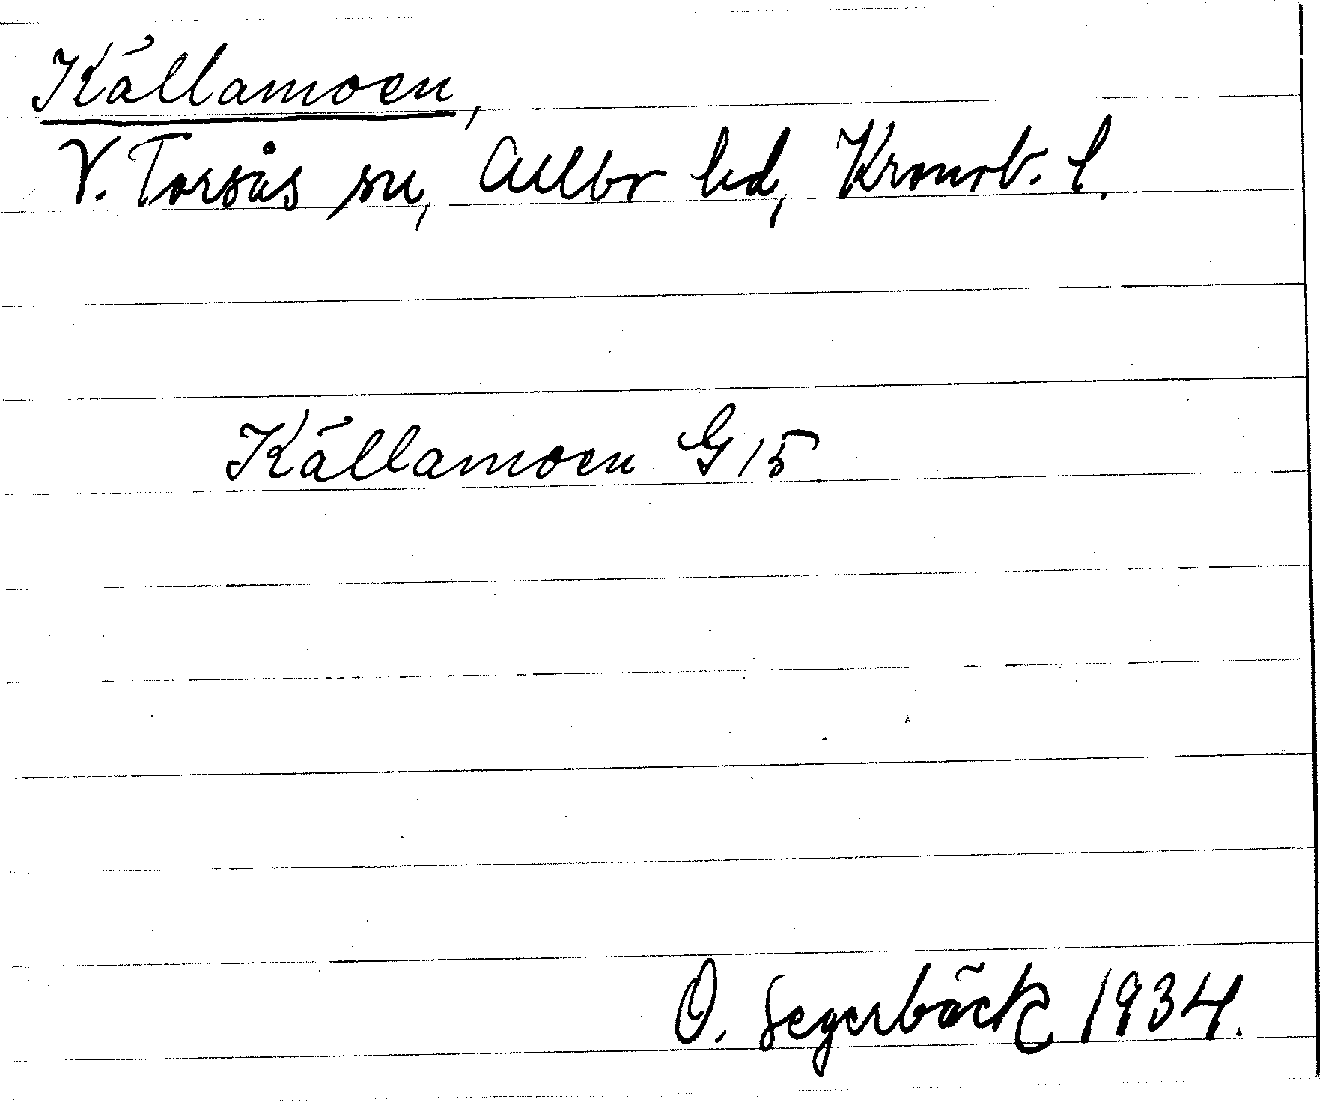 Källamoen,
V. Torsås sn, Allbo hd, Kronob. l.
Källamoen G 15
O. Segerbäck 1934.